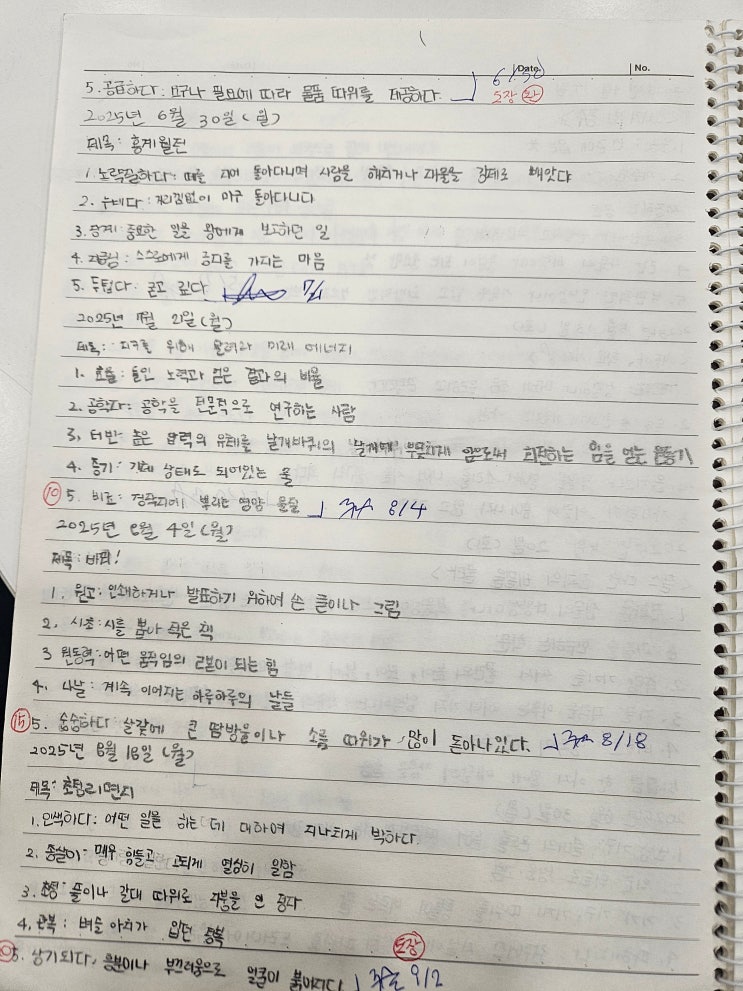 Date. 6/30 No.
5. 공급하다: 요구나 필요에 따라 물품 따위를 제공하다.
도장 완
2025년 6월 30일 (월)
제목: 홍계월전
1. 노략질하다: 떼를 지어 돌아다니며 사람을 해치거나 재물을 강제로 빼앗다
2. 누비다: 거리낌없이 마구 돌아다니다
3. 장계: 중요한 일을 왕에게 보고하던 일
4. 자긍심: 스스로에게 긍지를 가지는 마음
5. 두텁다: 굳고 깊다 7/21
2025년 7월 21일 (월)
제목: 지구를 위해 달려라 미래 에너지
1. 효율: 들인 노력과 얻은 결과의 비율
2. 공학자: 공학을 전문적으로 연구하는 사람
3. 터빈: 높은 압력의 유체를 날개바퀴의 날개에 부딪치게 함으로써 회전하는 힘을 얻는 원동기
4. 증기: 기체 상태로 되어있는 물
10 5. 비료: 경작지에 뿌리는 영양 물질 8/4
2025년 8월 4일 (월)
제목: 바람!
1. 원고: 인쇄하거나 발표하기 위하여 쓴 글이나 그림
2. 시초: 시를 뽑아 적은 책
3 원동력: 어떤 움직임의 근본이 되는 힘
4. 나날: 계속 이어지는 하루하루의 날들
15 5. 송송하다 살갗에 큰 땀방울이나 소름 따위가 많이 돋아나있다. 8/18
2025년 8월 18일 (월)
제목: 초립
1. 인색하다: 어떤 일을 하는 데 대하여 지나치게 박하다.
2. 종살이: 매우 힘들고 고되게 열심히 일함
3. 초정: 풀이나 갈대 따위로 지붕을 인 정자
4. 관복: 벼슬 아치가 입던 정복
도장
5. 상기되다, 흥분이나 부끄러움으로 얼굴이 붉어지다 9/2